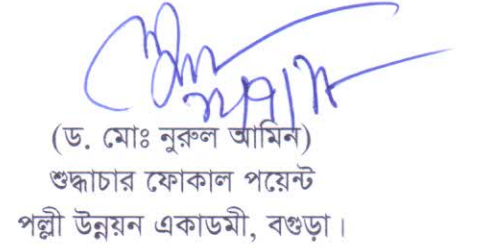 (ড. মোঃ নুরুল আমিন)
শুদ্ধাচার ফোকাল পয়েন্ট
পল্লী উন্নয়ন একাডমী, বগুড়া।